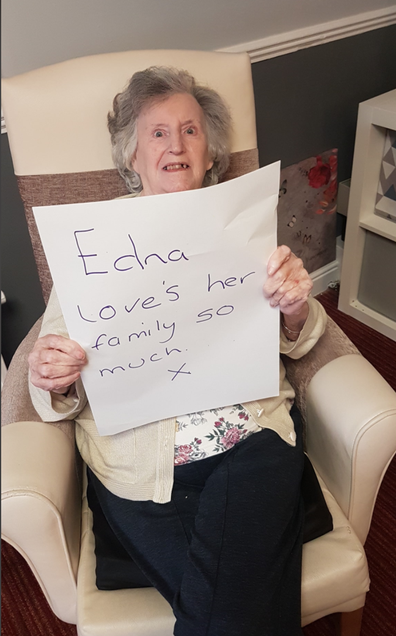 Edna
Love's her
family so
much.
x